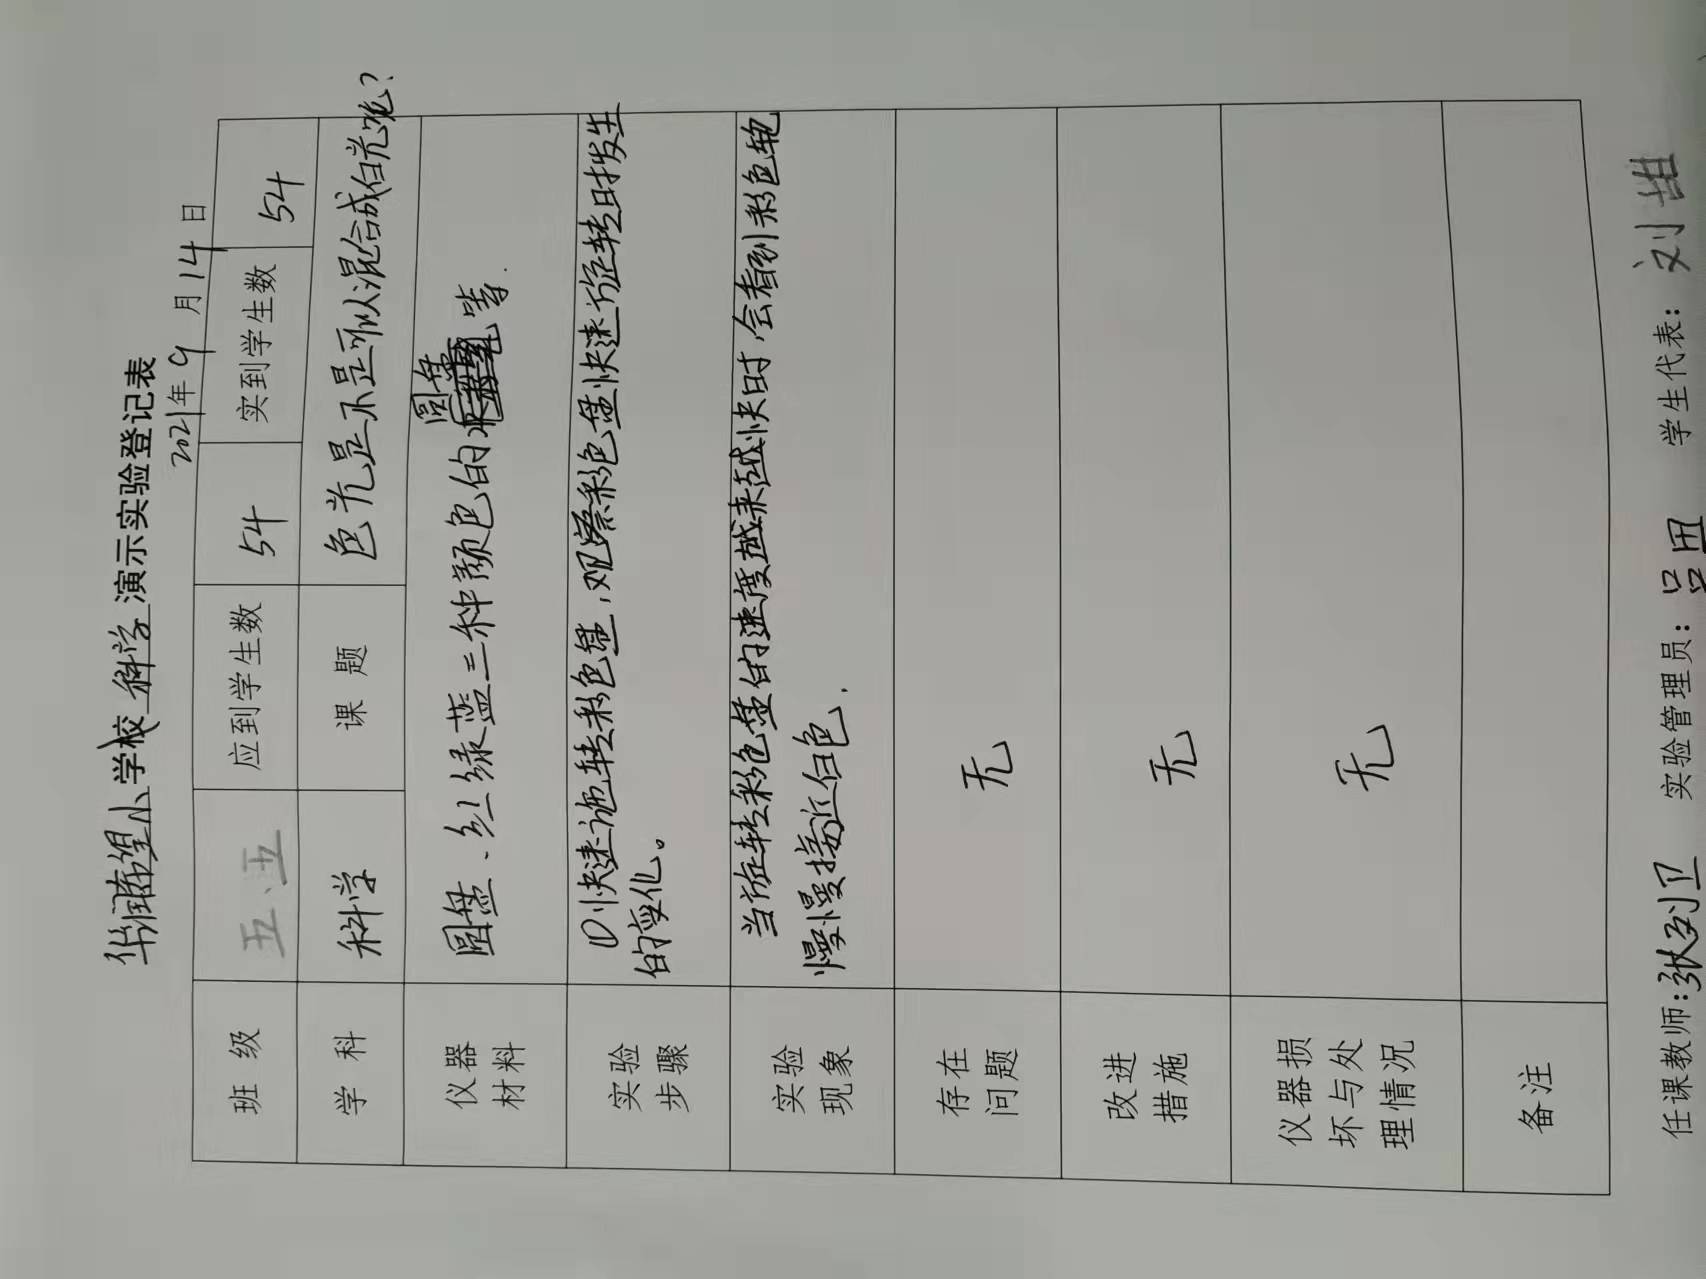 华润希望小学校 科学 演示实验登记表
2021年 9 月 14 日
班 级 五.五 应到学生数 54 实到学生数 54
学 科 科学 课 题 色光是不是可以混合成白光呢?
仪器材料 圆盘、红绿蓝三种颜色的圆盘等.
实验步骤 ①快速旋转彩色盘,观察彩色盘快速旋转时发生
的变化。
实验现象 当旋转彩色盘的速度越来越快时,会看到彩色
慢慢接近白色.
存在问题 无
改进措施 无
仪器损坏与处理情况 无
备注
任课教师: 实验管理员: 吕田 学生代表: 刘